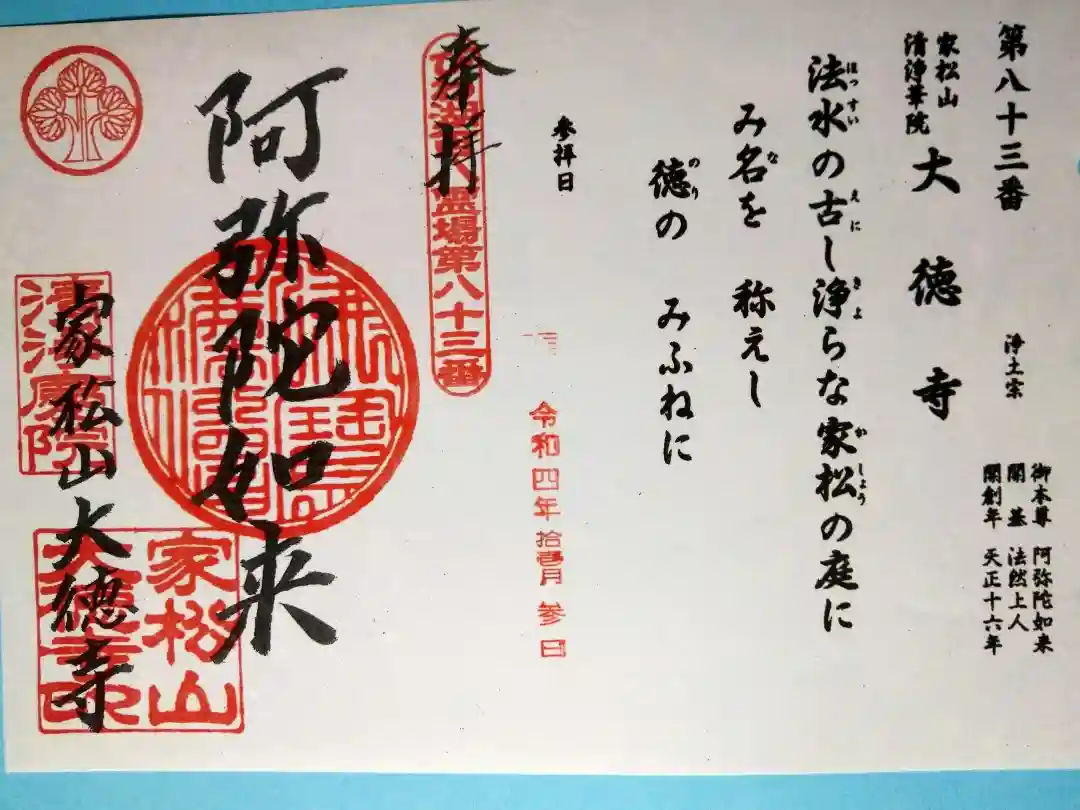 第八十三番
家松山
清浄華院
大徳寺
浄土宗
御本尊 阿弥陀如来
開基 法然上人
開創年 天正十六年
法水の古し浄らな家松の庭に
ほっすい えに きよ かしょう
み名を 称えし
な
徳の みふねに
のり
参拝日
令和四年拾壱月参日
奉拝
霊場第八十三番
阿弥陀如来
家松山大徳寺
家松山